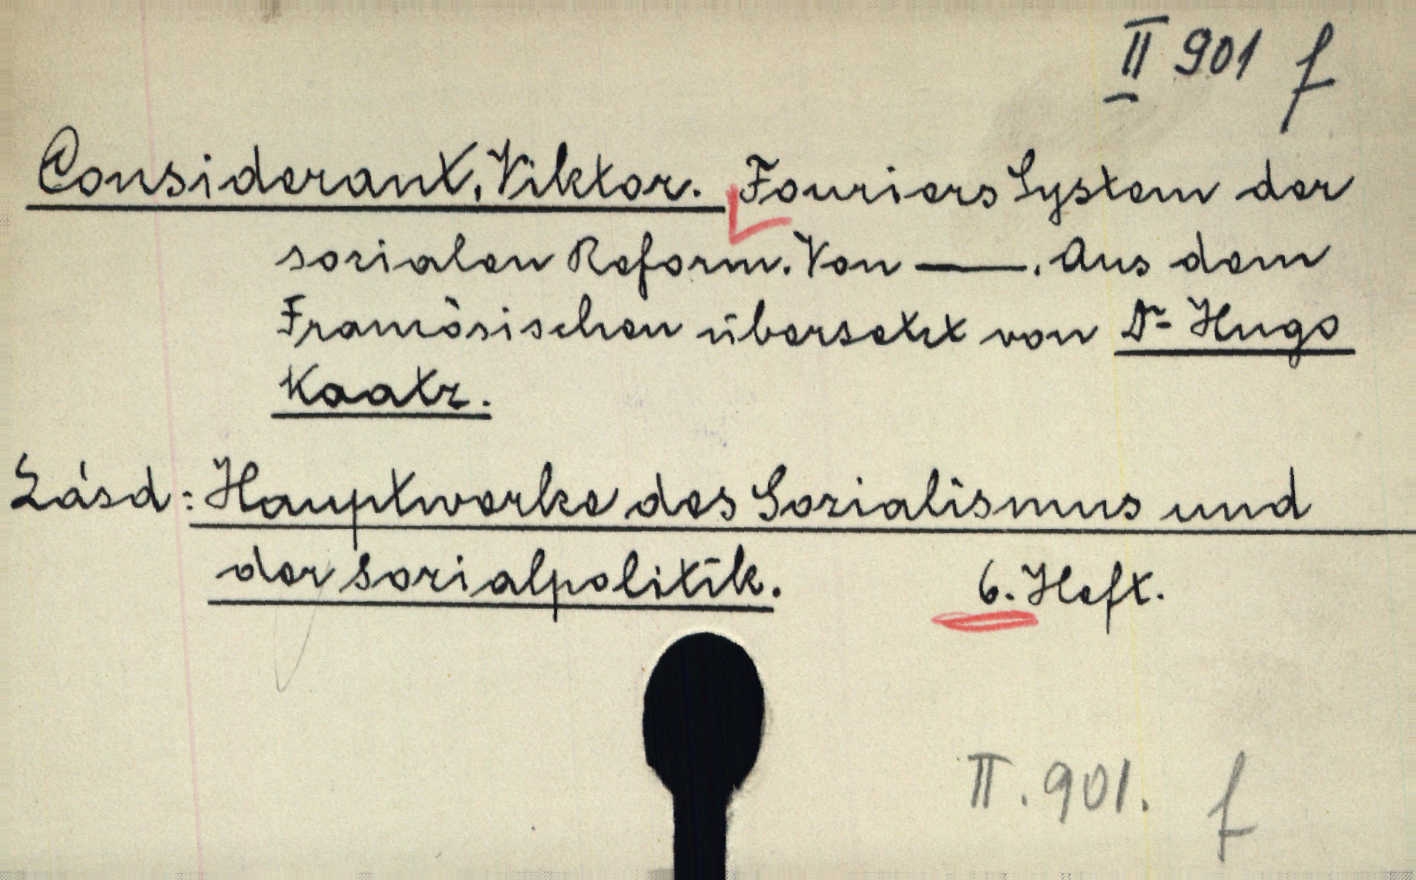 II 901 f
Considerant, Viktor. Fouriers System der
sozialen Reform. Von —. Aus dem
Französischen übersetzt von Dr. Hugo
Kaatz.
Lásd: Hauptwerke des Sozialismus und
der Sozialpolitik. 6. Heft.
II. 901. f